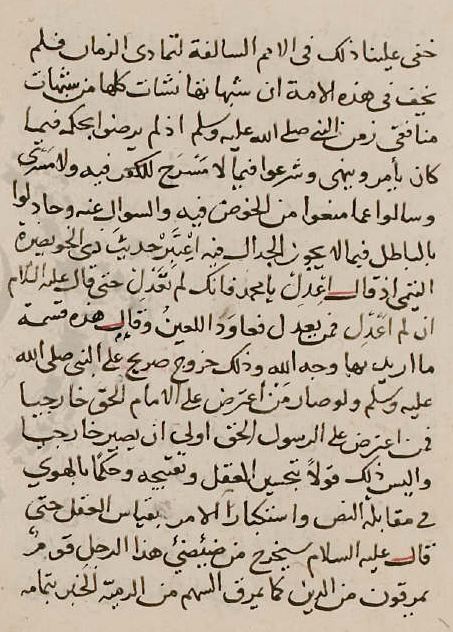 خفى علينا ذلك فى الامم السالفة لتمادى الزمان فلم
يخف فى هذه الامة ان شبهاتها نشات كلها من شبهات
منافقى زمن النبى صلى الله عليه وسلم اذ لم يرضوا بحكمه فيما
كان يأمر وينهى وشرعوا فيما لا مَسْرَح للفكر فيه ولا مَسْرَى
وسالوا عما منعوا من الخوض فيه والسوال عنه وجادلوا
بالباطل فيما لا يجوز الجدال فيه اعْتَبِرْ حديثَ ذى الخويصرة
التيمى اذ قال اعْدِل يا محمد فانك لم تَعْدل حتى قال عليه السلام
ان لم اعْدل فمن يعدل فعاود اللعينُ وقال هذه قسمة
ما اريد بها وجه الله وذلك خروج صريح على النبى صلى الله
عليه وسلم ولو صار مَن اعترض على الامام الحق خارجيا
فمن اعترض على الرسول الحق اولى ان يصير خارجيا
واليس ذلك قولاً بتحسين العقل وتقبيحه وحكمًا بالهوى
فى مقابلة النص واستكبارًا على الامر بقياس العقل حتى
قال عليه السلام سيخرج من ضئضئ هذا الرجل قوم
يمرقون من الدين كما يمرق السهم من الرميّة الخبر بتمامه